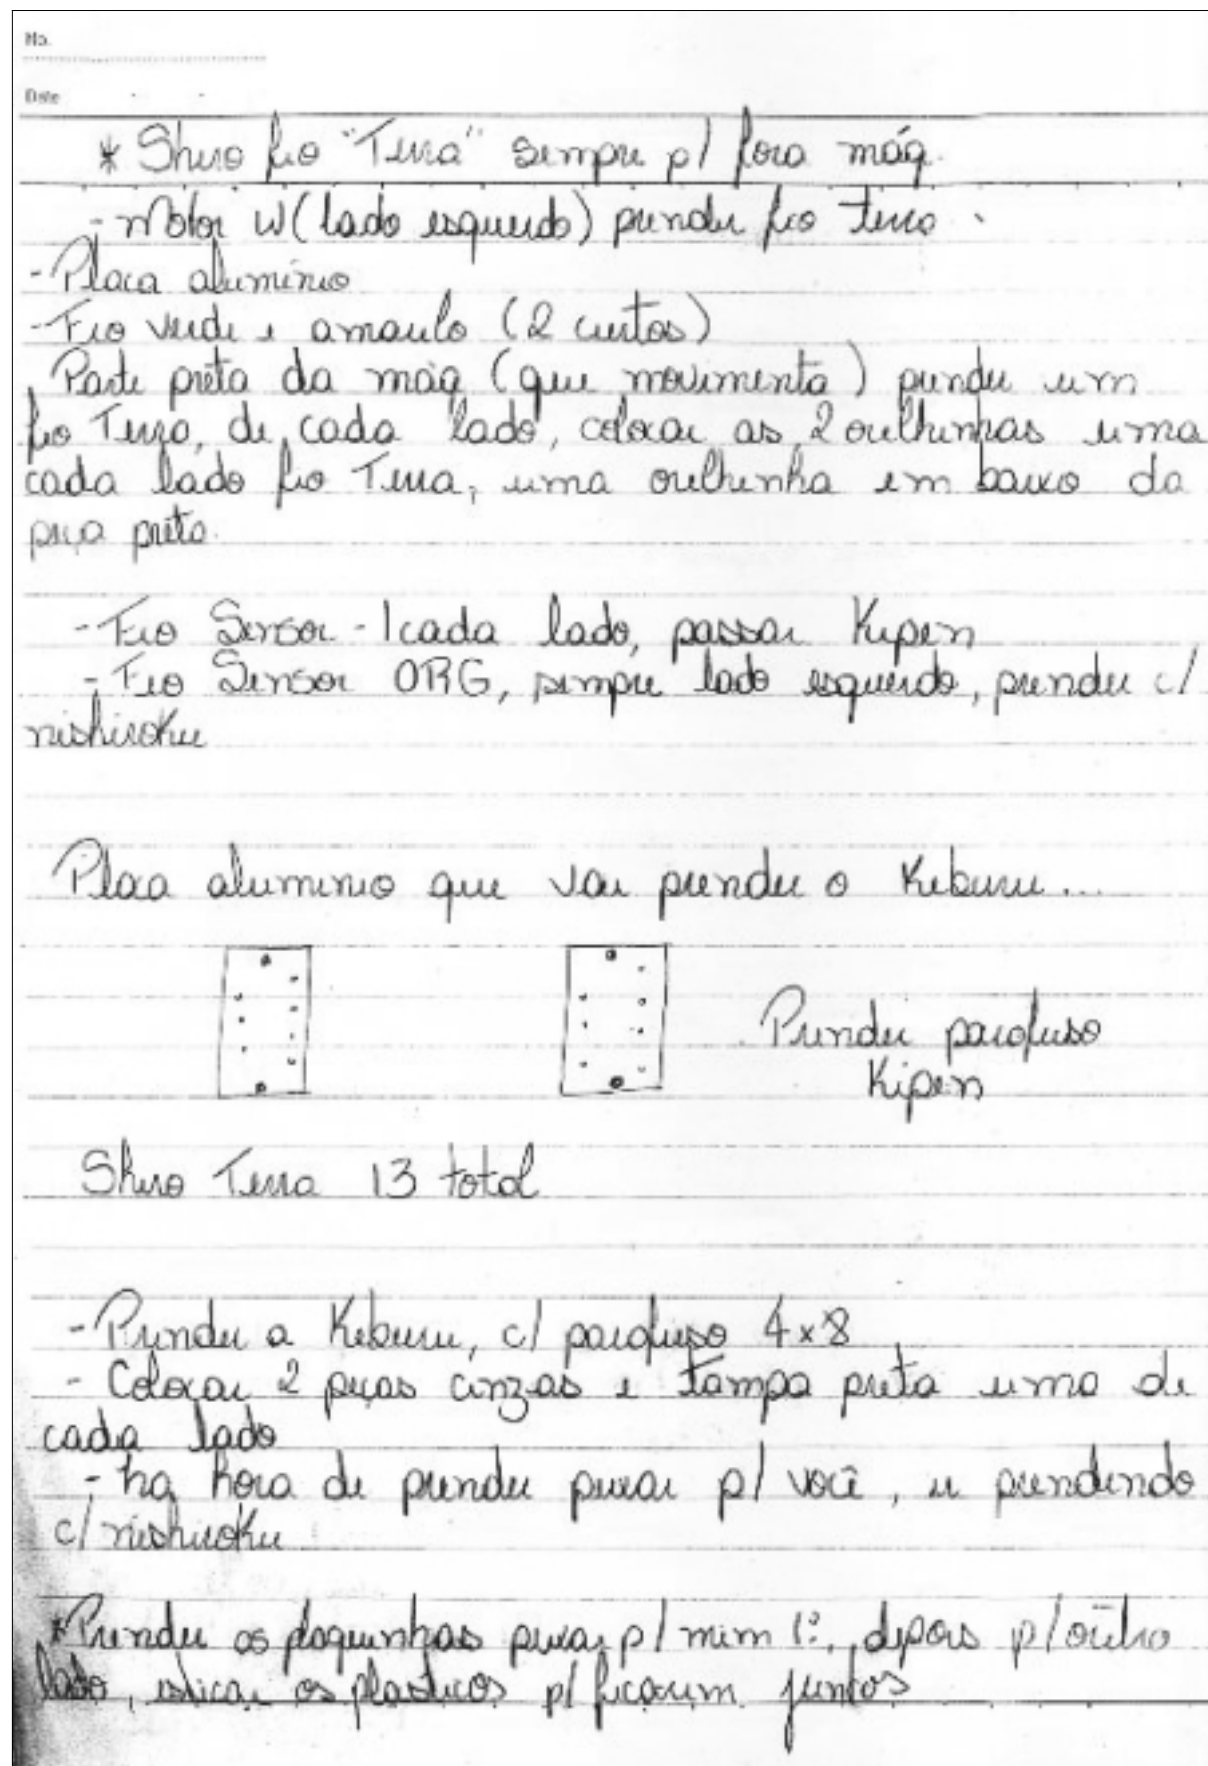 No.
Date
* Shiro fio "Terra" sempre p/ fora máq.
- Motor W (lado esquerdo) prender fio terra.
- Placa alumínio
- Fio verde e amarelo (2 curtos)
Parte preta da máq (que movimenta) prender um
fio Terra, de cada lado, colocar as 2 orelhinhas uma
cada lado fio Terra, uma orelhinha em baixo da
peça preta.
- Fio Sensor - 1 cada lado, passar Kipen
- Fio Sensor ORG, sempre lado esquerdo, prender c/
nishiroku
Placa alumínio que vai prender o Keburu...
Prender parafuso
Kipen
Shiro Terra 13 total
- Prender a Keburu, c/ parafuso 4x8
- Colocar 2 peças cinzas e tampa preta uma de
cada lado
- na hora de prender puxar p/ você, ir prendendo
c/ nishiroku
* Prender as plaquinhas puxar p/ mim 1º, depois p/ outro
lado, esticar os plasticos p/ ficarem juntos